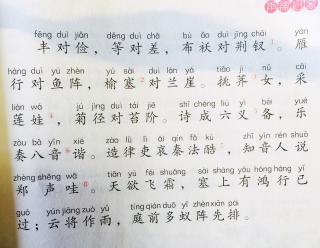 fēng duì jiǎn, děng duì chā, bù ǎo duì jīng chāi. yàn
丰对俭，等对差，布袄对荆钗。雁
háng duì yú zhèn, yú sài duì lán yá. tiāo jì nǚ, cǎi
行对鱼阵，榆塞对兰崖。挑荠女，采
lián wá, jú jìng duì tái jiē. shī chéng liù yì bèi, yuè
莲娃，菊径对苔阶。诗成六义备，乐
zòu bā yīn xié. zào lǜ lì āi qín fǎ kù, zhī yīn rén shuō
奏八音谐。造律吏哀秦法酷，知音人说
zhèng shēng wā. tiān yù fēi shuāng, sài shàng yǒu hóng háng yǐ
郑声哇。天欲飞霜，塞上有鸿行已
guò; yún jiāng zuò yǔ, tíng qián duō yǐ zhèn xiān pái.
过；云将作雨，庭前多蚁阵先排。